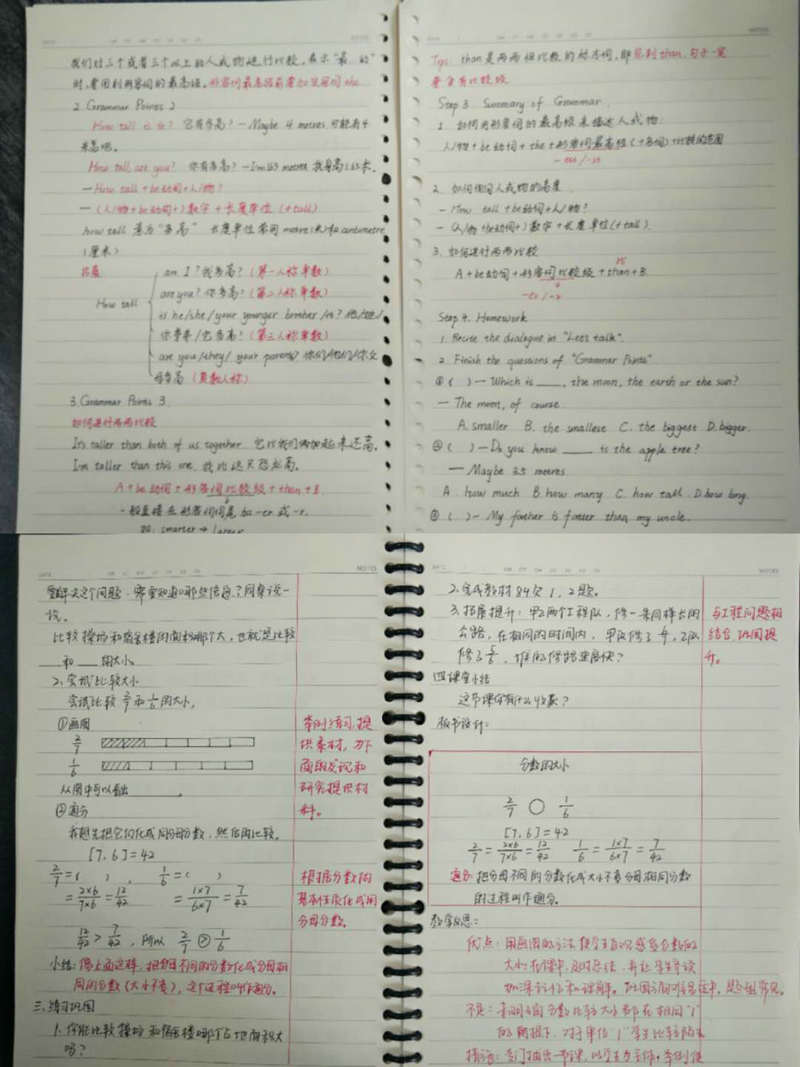 我们对三个或者三个以上的人或物进行比较,表示"最…的"
时,要用到形容词的最高级。形容词最高级前要加定冠词the.
2. Grammar Points 2
How tall is it? 它有多高? — Maybe 4 metres. 可能有4
米高吧。
How tall are you? 你有多高? — I'm 1.65 metres. 我身高1.65米。
— How tall + be动词+人/物?
— (人/物+be动词+) 数字 + 长度单位 (+tall)
how tall 意为"多高" 长度单位常用 metre(米)和 centimetre
(厘米)
拓展
am I? 我多高? (第一人称单数)
are you? 你多高? (第二人称单数)
How tall
is he/she/your younger brother/it? 他/她/
你弟弟/它多高? (第三人称单数)
are you/they/your parents? 你们/他们/你父
母多高 (复数人称)
3. Grammar Points 3
如何进行两两比较
It's taller than both of us together. 它比我们俩加起来还高。
I'm taller than this one. 我比这只恐龙高。
A + be动词 + 形容词比较级 + than + B.
一般直接在形容词词尾加 -er 或 -r.
如: smarter → larger
Tips: than是两两相比较的标志词,即见到than,句子一定
要用比较级
Step 3 Summary of Grammar
1. 如何用形容词的最高级来描述人或物
人/物 + be动词 + the + 形容词最高级 (+名词) + 比较的范围
-est / -st
2. 如何询问人或物的高度
- How tall + be动词+人/物?
- (人/物+be动词+) 数字 + 长度单位(+tall).
3. 如何进行两两比较
A + be动词 + 形容词比较级 + than + B.
-er / -r
Step 4. Homework
1. Recite the dialogue in "Let's talk".
2. Finish the questions of "Grammar Points"
① ( ) — Which is ____, the moon, the earth or the sun?
— The moon, of course.
A. smaller B. the smallest C. the biggest D. bigger.
② ( ) — Do you know ____ is the apple tree?
— Maybe 3.5 metres.
A. how much B. how many C. how tall D. how long.
③ ( ) — My father is faster than my uncle.
解决这个问题,需要知道哪些信息?同桌说一
说。
比较操场和宿舍楼的面积哪个大,也就是比较
____和____的大小。
2. 尝试比较大小
尝试比较 2/7 和 1/6 的大小。
①画图
2/7
1/6
从图中可以看出________。
②通分
我想先把它们化成同分母分数,然后再比较。
[7,6]=42
2/7 = ( ), 1/6 = ( )
= 2×6/7×6 = 12/42 = 1×7/6×7 = 7/42
12/42 > 7/42, 所以 2/7 > 1/6
小结:像上面这样,把分母不同的分数化成分母相
同的分数(大小不变),这个过程叫作通分。
三、练习巩固
1. 你能比较操场和宿舍楼哪个占地面积大
吗?
举例练习,提
供素材,为下
面的发现和
研究提供材
料。
根据分数的
基本性质化成同
分母分数。
2. 完成教材84页1、2题。
3. 拓展提升:甲乙两个工程队,修一条同样长的
公路,在相同的时间内,甲队修了
修了 谁的修路速度快?
与工程问题相
结合,巩固提
升。
四、课堂小结
这节课你有什么收获?
板书设计:
分数的大小
2/7 ○ 1/6
[7,6]=42
2/7 = 2×6/7×6 = 12/42 1/6 = 1×7/6×7 = 7/42
通分:把分母不同的分数化成大小不变分母相同分数
的过程叫作通分。
教学反思:
优点:用画图的方法,使学生直观感受分数的
大小,在课中,及时总结,并让学生多读
加深记忆和理解。
不足:
的前提下,对单位"1"学生比较陌生
措施:专门抽出一节课,以学生为主体,举例使